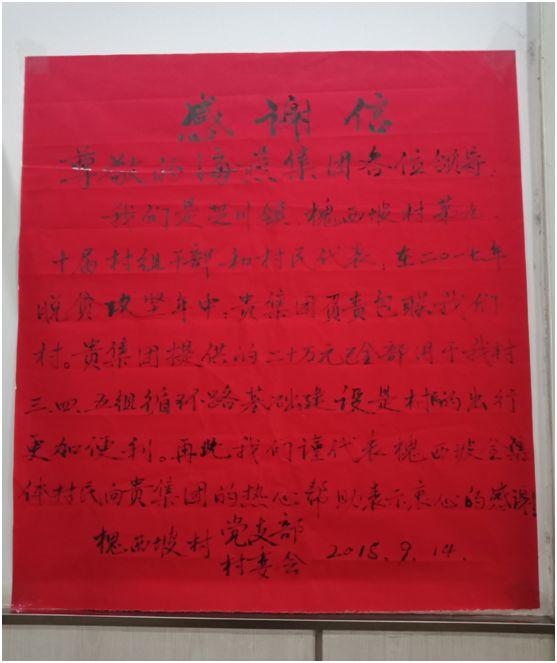 感谢信
尊敬的海燕集团各位领导:
我们是芝川镇、槐西坡村第九
十届村组干部和村民代表,在二〇一七年
脱贫攻坚年中,贵集团负责包联我们
村。贵集团提供的二十万元已全部用于我村
三、四、五组循环路基础建设是村的出行
更加便利。再此我们谨代表槐西坡全集
体村民向贵集团的热心帮助表示衷心的感谢!
槐西坡村 党支部
村委会 2018.9.14.